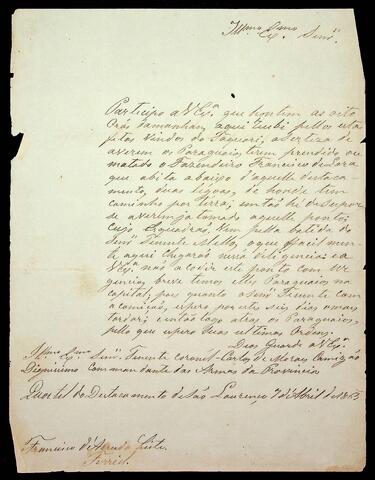 Illmo Exmo Senr.
Participo a V Exa. que hontem as oito
oras damanhan, aqui recibi pellos esta
fetas vindos do Taquari, a certeza de
averem os Paraguais, terem prendido ou
matado o Fazendeiro Francisco de Lara
que abita abaixo d'aquelle destaca-
mento, duas legoas, de honde tem
caminho por terra; então hé de supor
se averem ja tomado aquelle ponto;
cujo Esquadrão, vem pella batida do
Senr Tenente Mello, o que facilmen-
te aqui chegarão nessa deligencia e a
V Exa. não acodir este ponto com ur
gencia, breve temos elles Paraguaios na
capital, pois quanto o Senr Tenente com
a comição, espero por estes dias o mais
tardar; então logo atras os Paraguaios,
pello que espero suas ultimas Ordens.
Deos Guarde a V Exa.
Illmo Exmo Senr. Tenente coronel Carlos de Moraes Camizão
Dignissimo Commandante das Armas da Provincia
Quartel do Destacamento de São Lourenço 7 d'Abril de 1865
Francisco d'Arruda